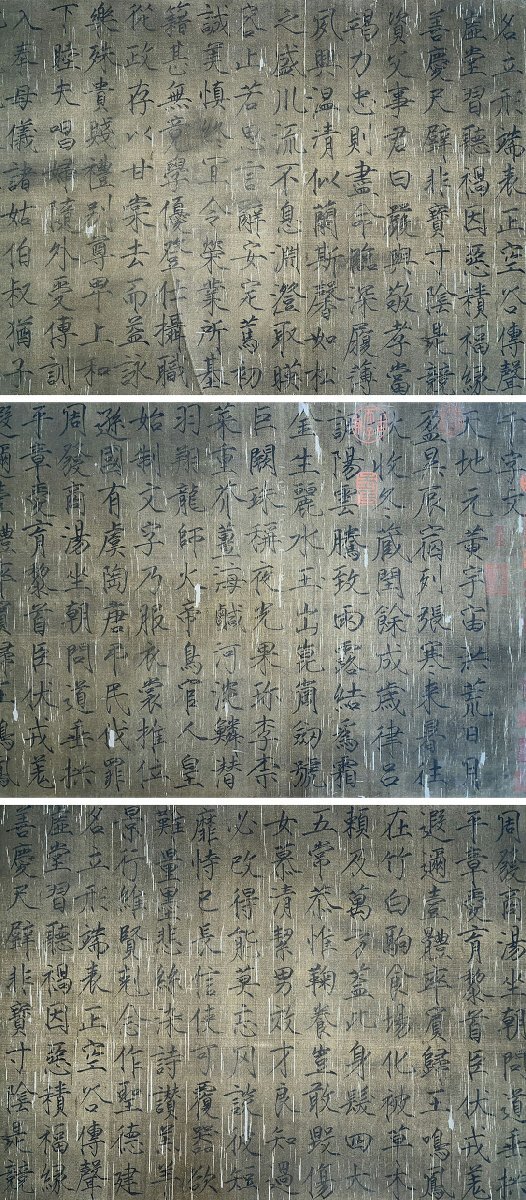 名立形端表正空谷傳聲
虛堂習聽禍因惡積福緣
善慶尺璧非寶寸陰是競
資父事君曰嚴與敬孝當
竭力忠則盡命臨深履薄
夙興溫清似蘭斯馨如松
之盛川流不息淵澄取映
容止若思言辭安定篤初
誠美慎終宜令榮業所基
籍甚無竟學優登仕攝職
從政存以甘棠去而益詠
樂殊貴賤禮別尊卑上和
下睦夫唱婦隨外受傅訓
入奉母儀諸姑伯叔猶子
千字文
天地元黃宇宙洪荒日月
盈昃辰宿列張寒来暑往
秋收冬蔵閏餘成歲律呂
調陽雲騰致雨露結為霜
金生麗水玉出崑崗劒號
巨闕珠稱夜光果珎李柰
菜重芥薑海鹹河淡鱗潛
羽翔龍師火帝鳥官人皇
始制文字乃服衣裳推位
遜國有虞陶唐弔民伐罪
周發商湯坐朝問道垂拱
平章愛育黎首臣伏戎羌
遐邇壹體率賓歸王鳴鳳
周發商湯坐朝問道垂拱
平章愛育黎首臣伏戎羌
遐邇壹體率賓歸王鳴鳳
在竹白駒食場化被草木
賴及萬方蓋此身髮四大
五常恭惟鞠養豈敢毀傷
女慕清絜男效才良知過
必改得能莫忘罔談彼短
靡恃己長信使可覆器欲
難量墨悲絲染詩讚羔羊
景行維賢剋念作聖德建
名立形端表正空谷傳聲
虛堂習聽禍因惡積福緣
善慶尺璧非寶寸陰是競